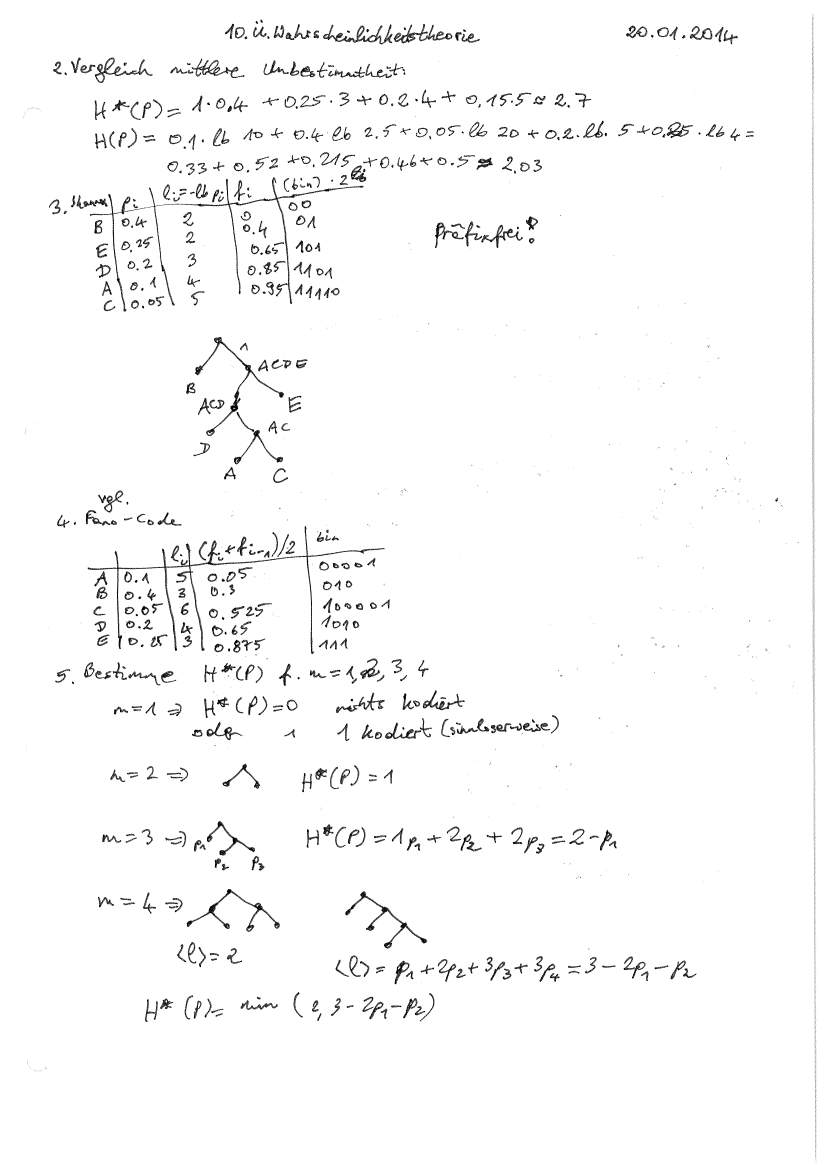 10. Ü. Wahrscheinlichkeitstheorie 20.01.2014
2. Vergleich mittlere Unbestimmtheit:
H*(P) = 1·0,4 + 0.25·3 + 0.2·4 + 0.15·5 ≈ 2.7
H(P) = 0.1·lb 10 + 0.4·lb 2.5 + 0.05·lb 20 + 0.2·lb 5 + 0.25·lb 4 =
0.33 + 0.52 + 0.215 + 0.46 + 0.5 ≈ 2.03
3. Shannon pi li=-lb pi fi (bin)·2^li
B 0.4 2 0 00
E 0.25 2 0.4 01
D 0.2 3 0.65 101
A 0.1 4 0.85 1101
C 0.05 5 0.95 11110
Präfixfrei!
1 ACDE
B
ACD E
D AC
A C
vgl.
4. Fano-Code
li (fi+fi-1)/2 bin
A 0.1 5 0.05 00001
B 0.4 3 0.3 010
C 0.05 6 0.525 100001
D 0.2 4 0.65 1010
E 0.25 3 0.875 111
5. Bestimme H*(P) f. m=1,2,3,4
m=1 ⇒ H*(P)=0 nichts kodiert
oder 1 1 kodiert (sinnloserweise)
m=2 ⇒ H*(P)=1
m=3 ⇒ p1 p2 p3 H*(P)=1p1+2p2+2p3=2-p1
m=4 ⇒
⟨l⟩=2 ⟨l⟩=p1+2p2+3p3+3p4=3-2p1-p2
H*(P)= min (2, 3-2p1-p2)